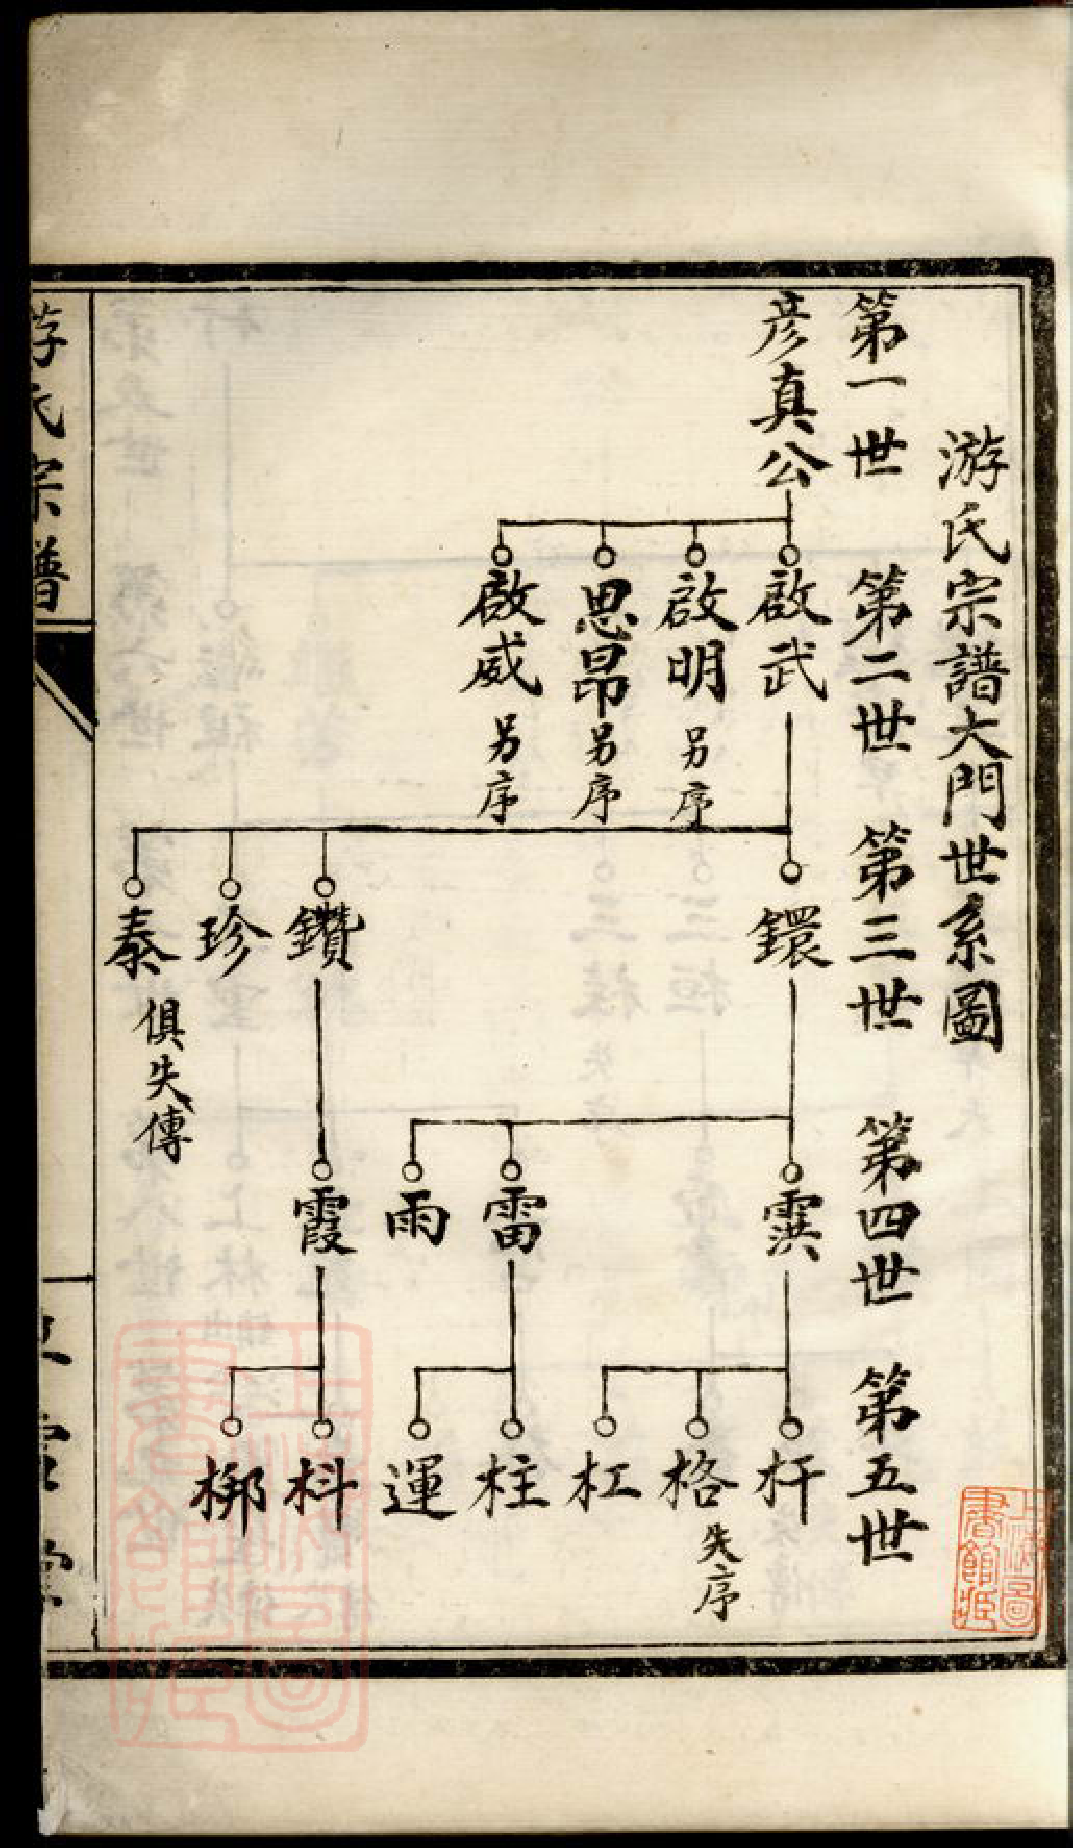 游氏宗譜大門世系圖
第一世 第二世 第三世 第四世 第五世
彦真公
啟武
啟明 另序
思昂 另序
啟威 另序
鐶
鑽
珍
泰
俱失傳
霟
雷
雨
霞
杆
格 失序
杠
柱
運
枓
梆
游氏宗譜